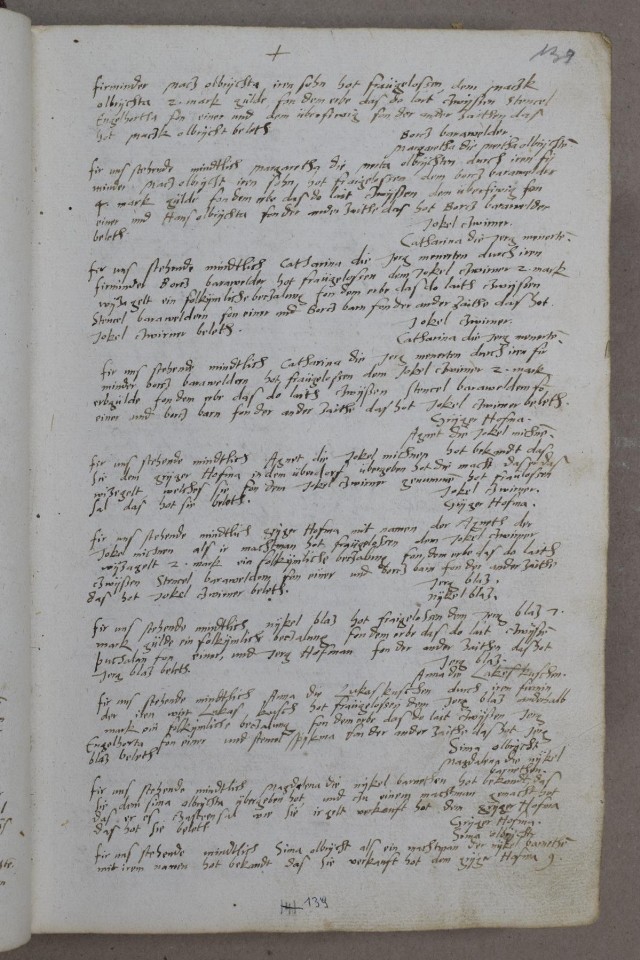 139
firminder Macz olbrijchta iren sohn hot fraygelossen dem Maczk
olbrijchta 2 mark gülde fon dem erbe das do lait czwijssen Stencel
Engelhortha fon einer und dem überfirwig fon der ander zaithen das
hot Maczk olbrijcht beleth.
Borcz barawelder.
Margaretha die olbrijchte
fir uns stehende mindtlich Margaretha die olbrijchten durch iren fir
minder Macz olbrijcht iren sohn, hot fraigelossen dem borcz barawelder
4 mark gülde fon dem erbe das do lait czwijssen dem überfirwig fon
einer und Hans olbrijchta fon der ander zaithe das hot Borcz barawelder
beleth.
Jokel czwirner.
Catharina die Jerg menerte
fir uns stehende mindtlich Catharina die Jerg menerten durch iren
firminder Borcz barawelder hot fraügelossen dem Jokel czwirner 2 mark
ein folkijmliche beczalung fon dem erbe das do laith czwijssen
Stencel baraweldern fon einer und Borcz barn fon der ander zaithe das hot
Jokel czwirner beleth.
Jokel czwirner.
Catharina die Jerg menerte
fir uns stehende mindtlich Catharina die Jerg menerten durch iren fir
minder borcz barawelder hot fraügelossen dem Jokel czwirner 2 mark
erbgülde fon dem erbe das do laith czwijssen Stencel baraweldern fon
einer und borcz barn fon der ander zaithe das hot Jokel czwirner beleth.
Grijger Hofma.
Agnet die Jokel
fir uns stehende mindtlich Agnet die Jokel hot bekandt das
sie dem grijger Hofma in dem überdorf übergeben hot die macht das
welches sie fon dem Jokel czwirner genumme hot fraülossen
sal das hot sie beleth.
Jokel czwirner.
Grijger Hofma.
fir uns stehende mindtlich grijger Hofma mit namen der Agneth der
Jokel als ir machtman hot fraügelossen dem Jokel czwirner
2 mark ein folkijmliche beczalung fon dem erbe das do laith
czwijssen Stencel baraweldern fon einer und borcz barn fon der ander zaithe
das hot Jokel czwirner beleth.
Jerg blaz.
Nijkel blaz.
fir uns stehende mindtlich nijkel blaz hot fraigelossen dem Jerg blaz 7
mark gülde ein folkijmlich beczalung fon dem erbe das do lait czwijsse
fon einer, und Jerg Hofman fon der ander zaithen das hot
Jerg blaz beleth.
Jerg blaz.
Anna die Lukas kuschen.
fir uns stehende mindtlich Anna die Lukas kuschen durch iren firmin
der iren wirt Lukas kusch hot fraügelossen dem Jerg blaz anderhalb
mark ein folkijmliche beczalung fon dem erbe das do lait czwijssen Jerg
Engelhorta fon einer und fon der ander zaithe das hot Jerg
blaz beleth.
Sima olbrijcht
Magdalena die nijkel
barnethen.
fir uns stehende mindtlich Magdalena die nijkel barnethen hot bekandt das
sie dem sima olbrijchta übergeben hot, und zu einem machtman gemacht hot
das er es sal wie sie irgelt verkauft hot dem grijger Hofma
das hot sie beleth.
Grijger Hofma.
Sima olbrijcht
fir uns stehende mindtlich Sima olbrijcht als ein machtman der nijkel barnethe
mit irem namen hot bekandt das sie verkauft hot dem grijger Hofma 9.
139